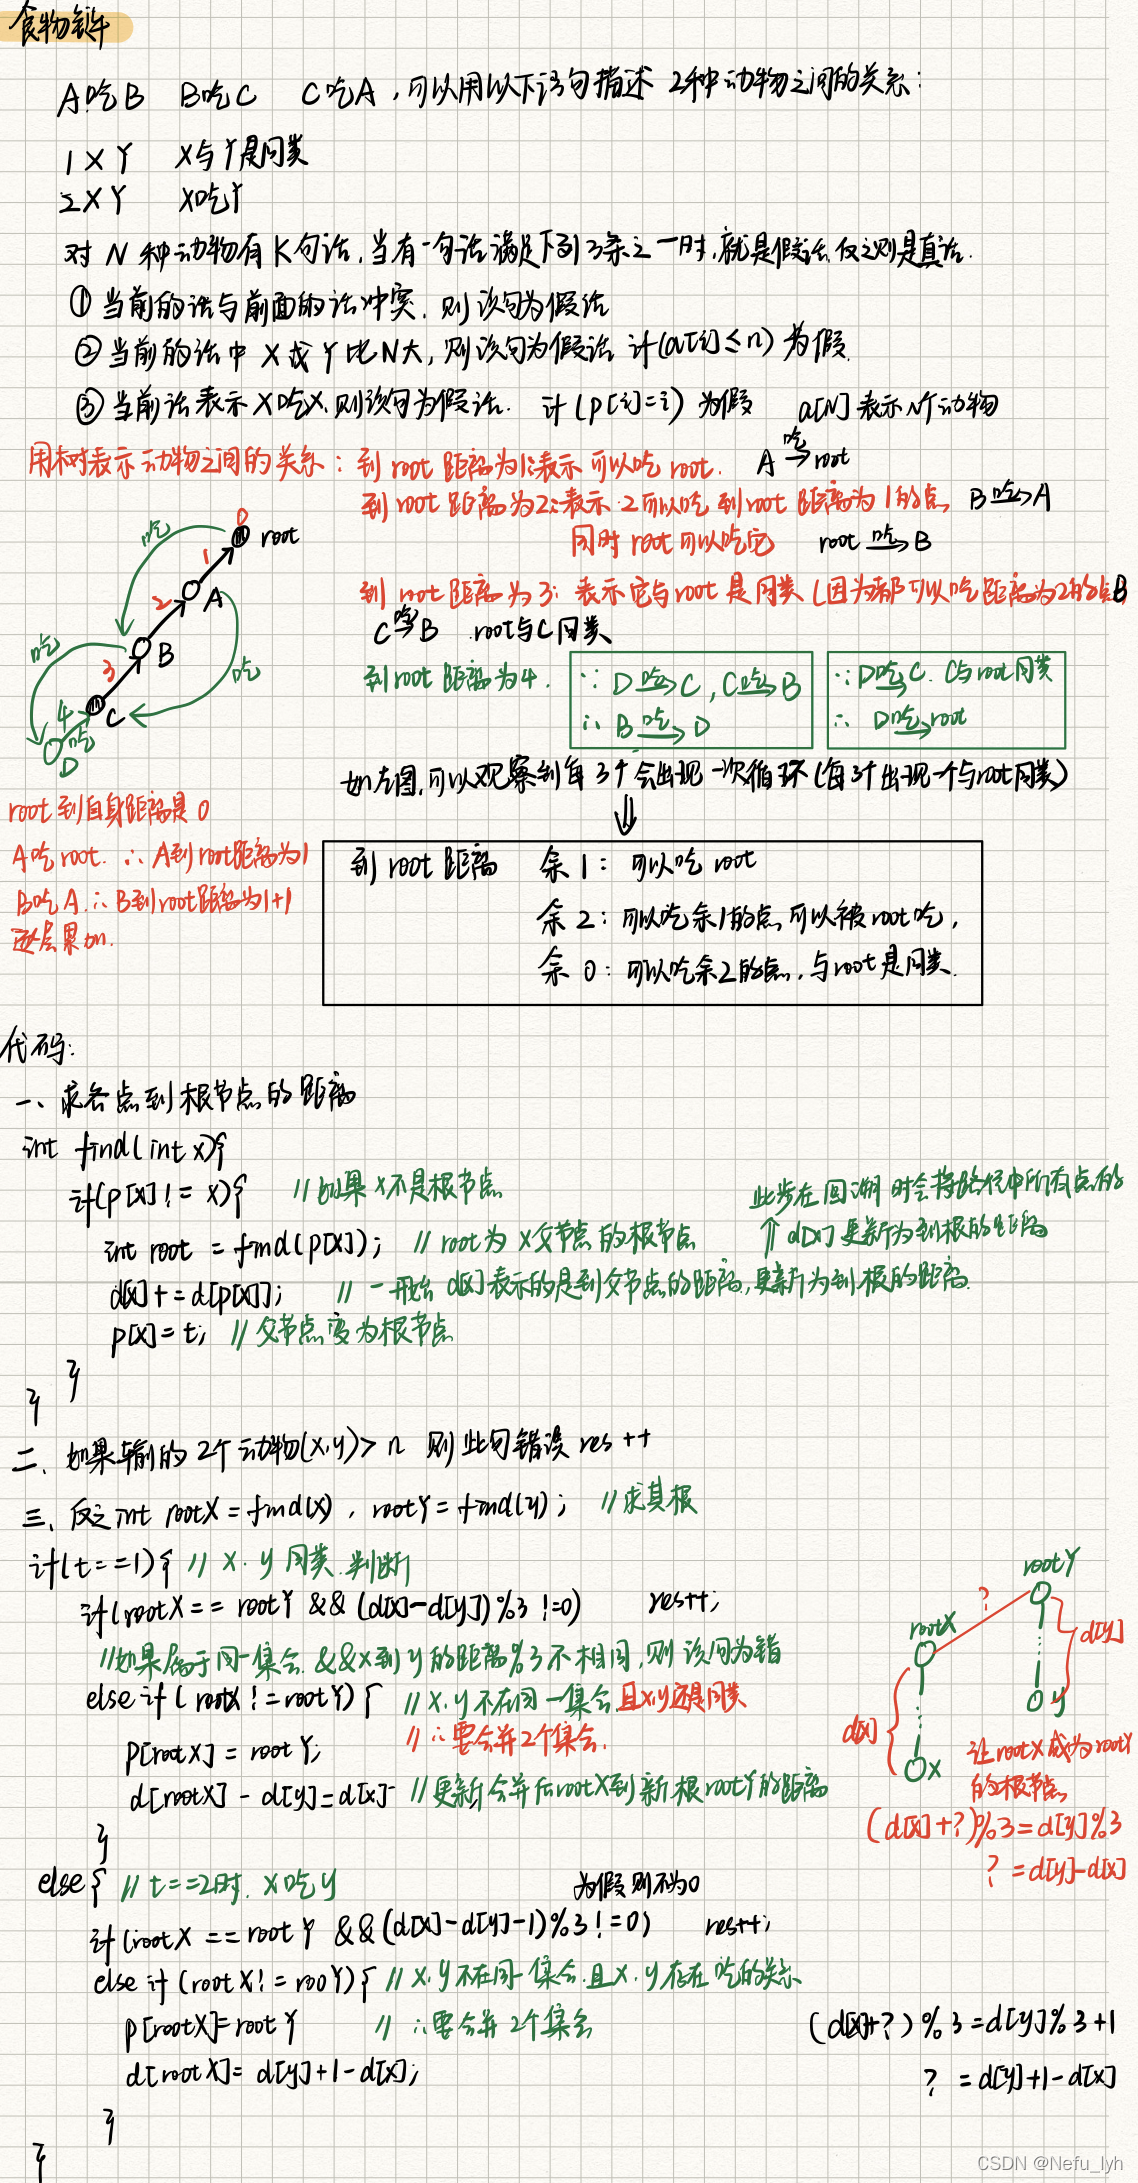 食物链
A吃B B吃C C吃A,可以用以下语句描述 2种动物之间的关系:
1 X Y X与Y是同类
2 X Y X吃Y
对 N 种动物有K句话,当有一句话满足下列3条之一时,就是假话,反之则是真话.
① 当前的话与前面的话冲突,则该句为假话
② 当前的话中 X 或 Y 比N大,则该句为假话 if(a[i]≤n) 为假.
③ 当前话表示X吃X,则该句为假话. if(p[i]=i) 为假 a[N]表示N个动物
用树表示动物之间的关系:到 root 距离为1:表示可以吃 root. A 吃→ root
到 root 距离为2:表示 2可以吃 到root 距离为1的点 B 吃→ A
同时 root 可以吃它 root 吃→ B
到 root 距离为3: 表示它与root 是同类(因为都可以吃距离为2的点)B
C 吃→ B root与C同类
到root 距离为4.
∵ D 吃→ C, C 吃→ B
∴ B 吃→ D
∵ D 吃→ C. C与root同类
∴ D 吃→ root
0 root
吃
1
A
2
B
吃
3
吃
C
4
吃
D
如左图,可以观察到每 3个会出现一次循环(每3个出现一个与root同类)
root 到自身距离是 0
A吃root. ∴ A到root距离为1
B吃A.∴ B到root距离为1+1
逐层累加.
到 root 距离 余 1: 可以吃 root
余 2: 可以吃余1的点,可以被root吃,
余 0: 可以吃余2的点,与root是同类.
代码:
一、求各点到根节点的距离
int find(int x){
if(p[x]!= x){ //如果x不是根节点
此步在回溯时会将路径中所有点的
↑ d[x]更新为到根的距离
int root = find(p[x]); // root为 x父节点的根节点
d[x] += d[p[x]]; // 一开始 d[x]表示的是到父节点的距离,更新为到根的距离.
p[x]= t; // 父节点变为根节点
}
}
二、如果输的 2个动物(x,y)> n 则此句错误 res ++
三、反之int rootX = find(x) , rootY= find(y); //求其根
if(t==1){ // x.y 同类.判断
if(rootX == rootY &&(d[x]-d[y])%3 !=0) res++;
//如果属于同一集合 &&x到y的距离%3不相同,则该句为错
else if( rootX != rootY) { // x.y不在同一集合 且x,y还是同类
p[rootX] = rootY; // ∴要合并2个集合.
d[rootX] - d[y]=d[x]- //更新合并后rootX到新根rootY的距离
}
rootY
?
rootX
d[y]
y
d[x]
x
让rootX成为rootY
的根节点
(d[x]+?)%3=d[y]%3
? =d[y]-d[x]
else{ // t==2时. x吃y 为假则不为0
if(rootX == rootY &&(d[x]-d[y]-1)%3!=0) res++;
else if (rootX!= rooY){ // x.y不在同一集合.且x.y存在吃的关系
p[rootX]=rootY // ∴要合并2个集合
d[rootX]= d[y]+1-d[x];
(d[x]+?)%3=d[y]%3+1
? =d[y]+1-d[x]
}
}
CSDN @Nefu_lyh